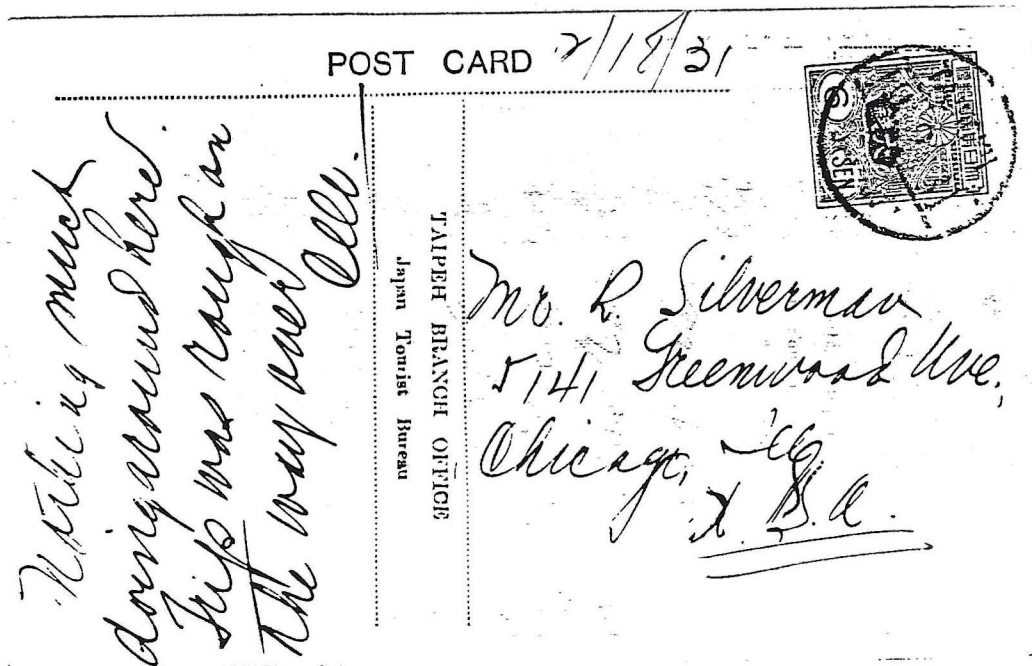 POST CARD 2/18/31
6 SEN
Nothing much
doing around here.
Trip was rough on
the way over
TAIPEH BRANCH OFFICE
Japan Tourist Bureau
Mr. R. Silverman
5141 Greenwood Ave,
Chicago, Ill
U.S.A.